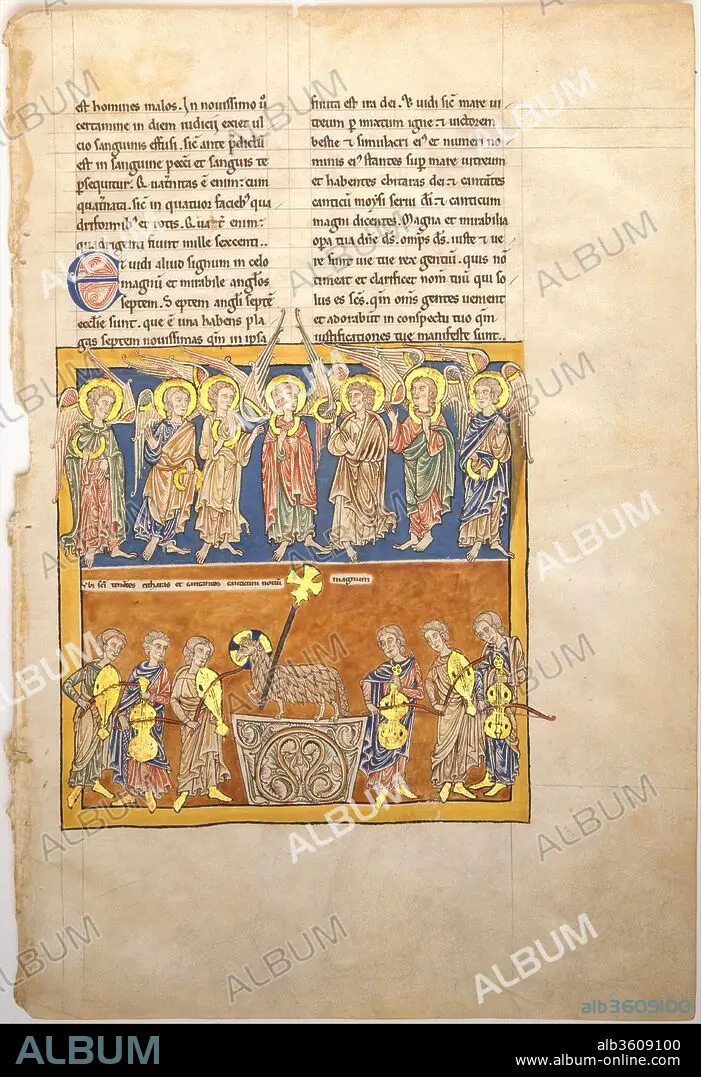 est homines malos. In nouissimo u̅
certamine in diem iudicii exiet ul
cio sanguinis effusi. sic̅ ante p̅dictu̅
est in sanguine pecc̅i et sanguis te
p̅sequitur.
quat̅nata. sic̅ in quatuor facieb; qua
driformib; et rotis.
quadrigenti fiunt mille sexcenti..
Et uidi aliud signum in celo
magnu̅ et mirabile anglos
septem. Septem angli septe̅
eccl̅ie sunt. que e̅ una habens pla
gas septem nouissimas qm̅ in ipsa
finita est ira dei. Et uidi sic̅ mare ui
treum p̅ mixtum igne ⁊ uictorem
bestie ⁊ simulacri ei᷒ et numeri no
minis ei᷒ stantes sup̅ mare uitreum
et habentes chitaras dei ⁊ cantãtes
canticu̅ moysi serui d̅i ⁊ canticum
magni dicentes. Magna et mirabilia
opa tua dn̅e d̅s. omp̅s d̅s. iuste ⁊ ue
re sunt uie tue rex gentiu̅. quis no̅
timeat et clarificet nom̅ tuu̅ qui so
lus es sc̅s. qm̅ om̅s gentes uenient
et adorabu̅t in conspectu tuo qm̅
iustificationes tue manifeste sunt..
Vbi sc̅i tenentes citharas et cantantes canticum nouu̅ magnum
ALBUM
alb3609100
ALBUM
alb3609100
www.album-online.com